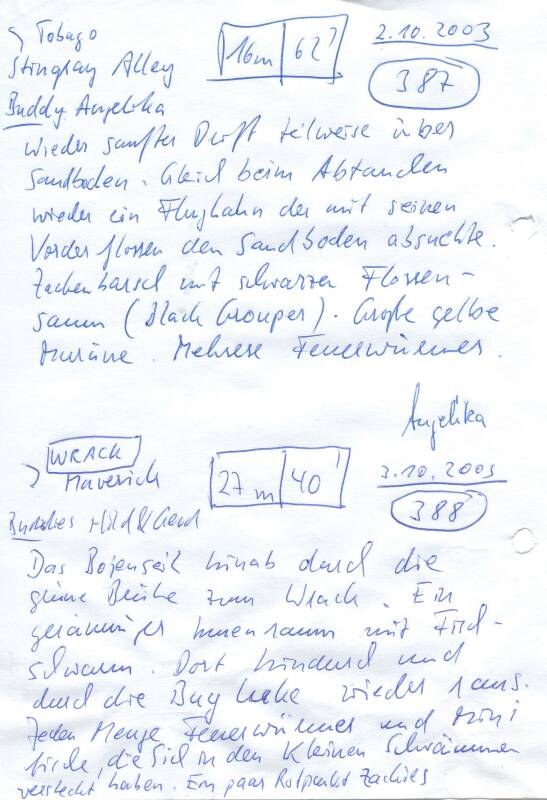 Tobago
16m 62' 2.10.2003
Stingray Alley
387
Buddy Angelika
wieder sanfter Drift teilweise über
Sandboden. Gleich beim Abtauchen
wieder ein Flughahn der mit seinen
Vorderflossen den Sandboden absuchte.
Zackenbarsch mit schwarzen Flossen-
saum (Black Grouper). Große gelbe
Muräne. Mehrere Feuerwürmer.
Angelika
WRACK
27m 40' 3.10.2003
Maverick
388
Buddies Hild & Gerd
Das Bojenseil hinab durch die
grüne Brühe zum Wrack. Ein
geräumiger Innenraum mit Fisch-
schwarm. Dort hindurch und
durch die Bugluke wieder raus.
Jeden Menge Feuerwürmer und Mini
fische, die sich in den kleinen Schwämmen
versteckt haben. Ein paar Rotpunkt Zackies